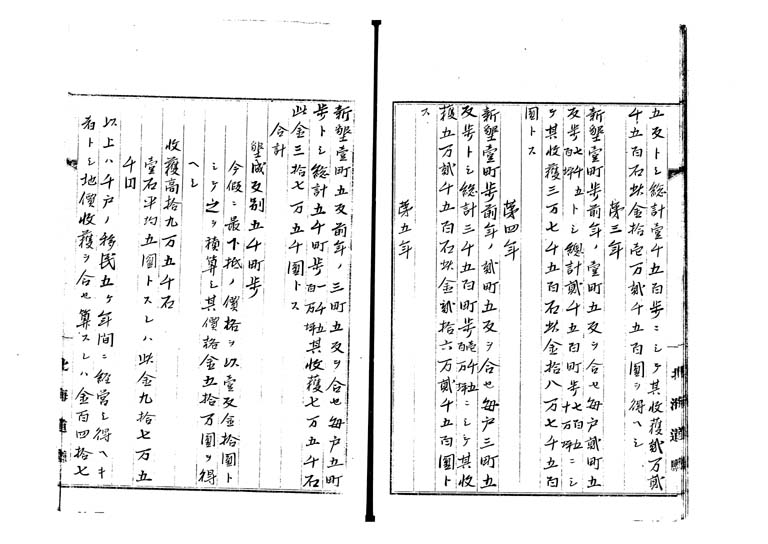 五反トシ総計壹千五百歩ニシテ其收穫貳万貳
千五百石此金拾壱万貳千五百圓ヲ得ヘシ
第三年
新墾壹町歩前年ノ壹町五反ヲ合セ毎戸貳町五
反歩トシ総計貳千五百町歩七百五十万坪ニシ
テ其收穫三万七千五百石此金拾八万七千五百
圓トス
第四年
新墾壹町歩前年ノ貳町五反ヲ合セ毎戸三町五
反歩トシ総計三千五百町歩ニシテ其收
穫五万貳千五百石此金貳拾六万貳千五百圓ト
ス
第五年
新墾壹町五反前年ノ三町五反ヲ合セ毎戸五町
歩トシ総計五千町歩一千五百万坪其收穫七万五千石
此金三拾七万五千圓トス
合計
墾成反別五千町歩
今假ニ最下抵ノ價格ヲ以壹反金拾圓ト
シテ之ヲ積算シ其價格金五拾万圓ヲ得
ヘシ
收穫高拾九万五千石
壹石平均五圓トスレハ此金九拾七万五
千円
以上ハ千戸ノ移民五ヶ年間ニ経営シ得ヘキ
者トシ地價收穫ヲ合セ算スレハ金百四拾七
北海道廳
北海道廳